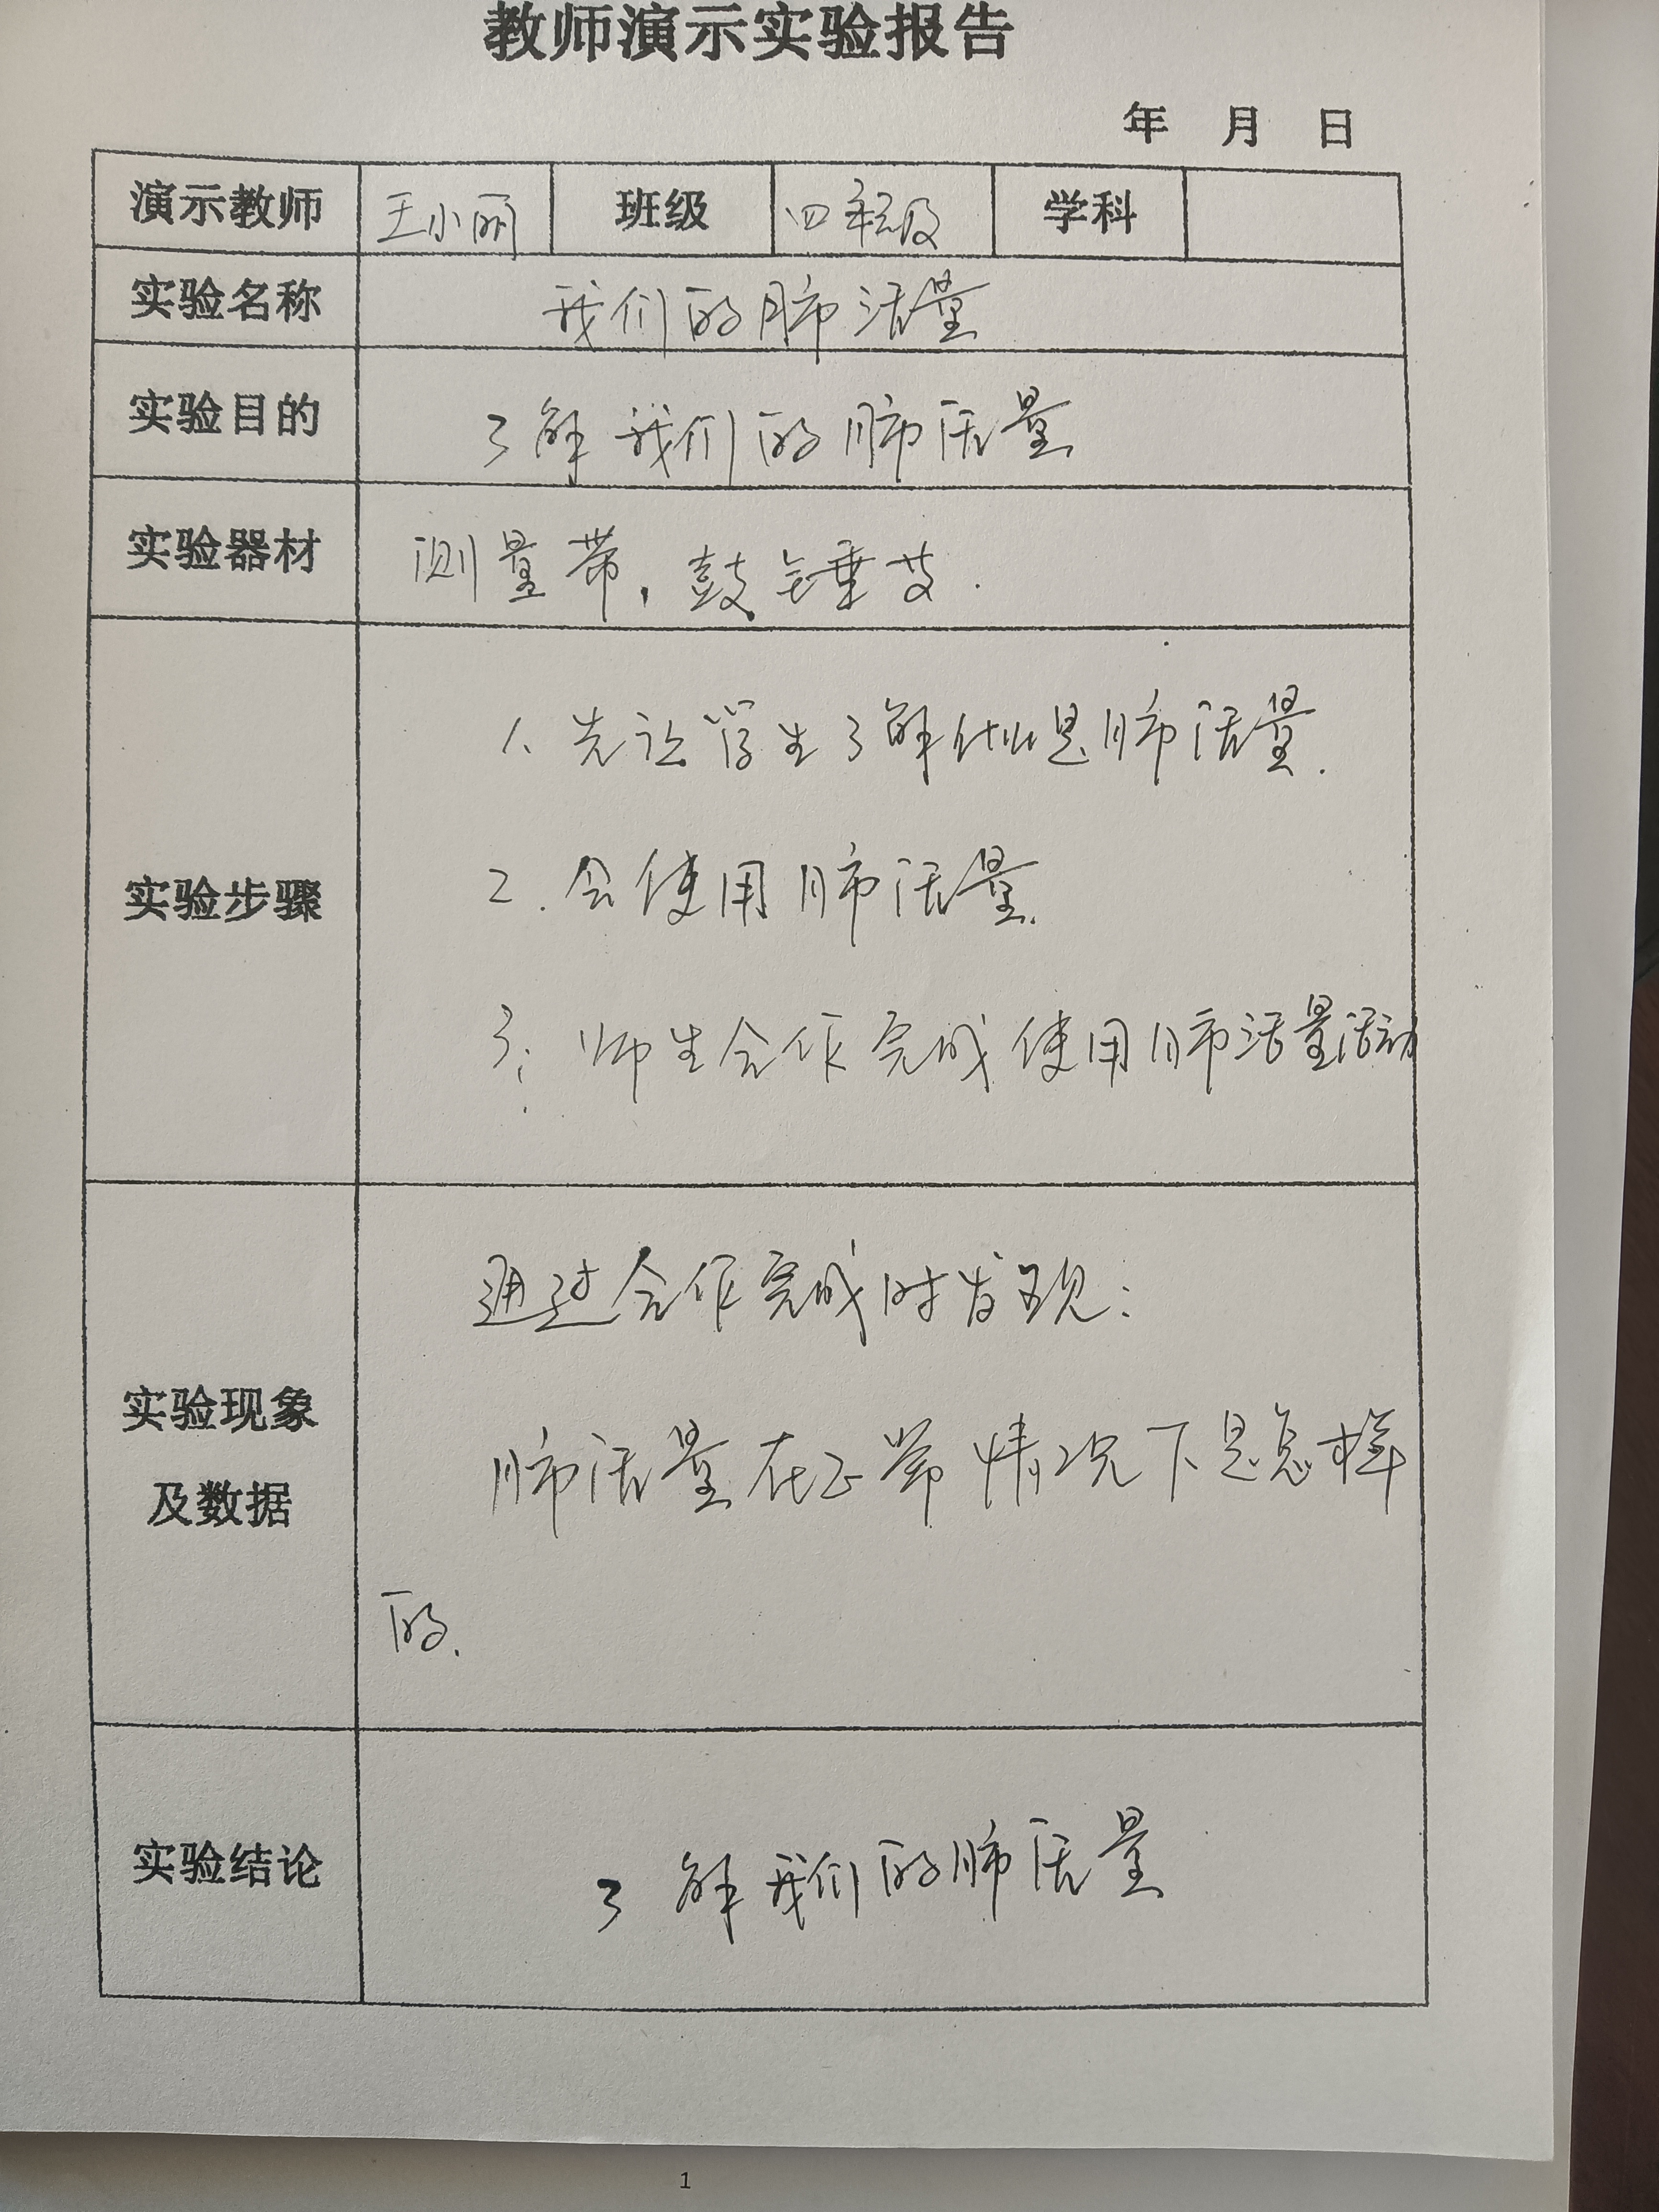 教师演示实验报告
年 月 日
演示教师 王小丽 班级 四年级 学科
实验名称 我们的肺活量
实验目的 了解我们的肺活量
实验器材 测量带,鼓锤
1、先让学生了解什么是肺活量.
实验步骤 2.会使用肺活量.
3.师生合作完成使用肺活量活动
通过合作完成时发现:
实验现象 肺活量在正常情况下是怎样
及数据
的.
实验结论 了解我们的肺活量
1